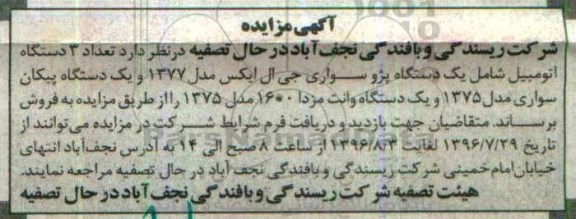 آگهی مزایده
شرکت ریسندگی و بافندگی نجف آباد در حال تصفیه درنظر دارد تعداد ۳ دستگاه
اتومبیل شامل یک دستگاه پژو سواری جی ال ایکس مدل ۱۳۷۷ و یک دستگاه پیکان
سواری مدل ۱۳۷۵ و یک دستگاه وانت مزدا ۱۶۰۰ مدل ۱۳۷۵ را از طریق مزایده به فروش
برساند. متقاضیان جهت بازدید و دریافت فرم شرایط شرکت در مزایده می‌توانند از
تاریخ ۱۳۹۶/۷/۲۹ لغایت ۱۳۹۶/۸/۳ از ساعت ۸ صبح الی ۱۴ به آدرس نجف‌آباد انتهای
خیابان امام خمینی شرکت ریسندگی و بافندگی نجف آباد در حال تصفیه مراجعه نمایند.
هیئت تصفیه شرکت ریسندگی و بافندگی نجف آباد در حال تصفیه